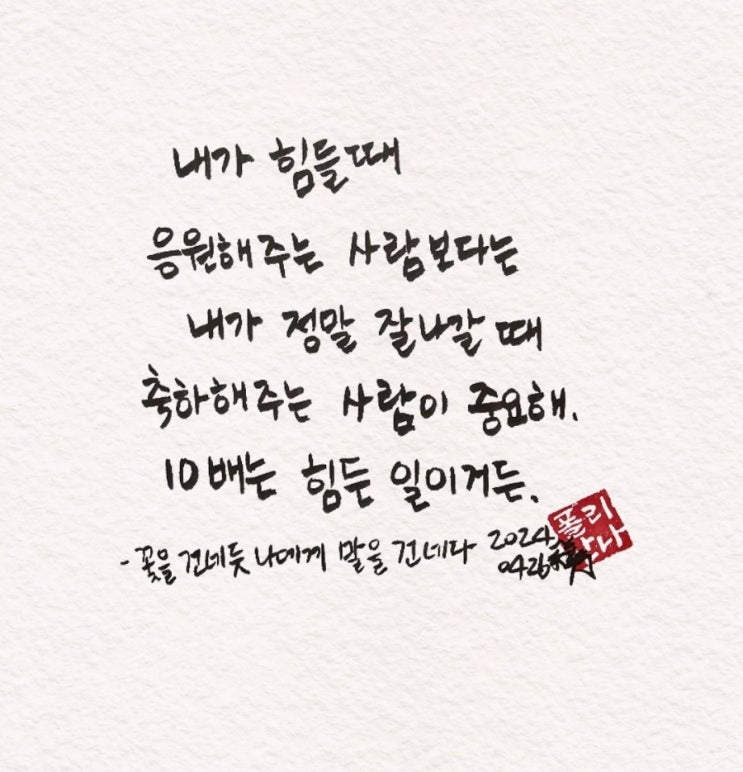 내가 힘들때
응원해주는 사람보다는
내가 정말 잘나갈 때
축하해주는 사람이 중요해.
10배는 힘든 일이거든.
- 꽃을 건네듯 나에게 말을 건네다 2024
0426
폴리
나